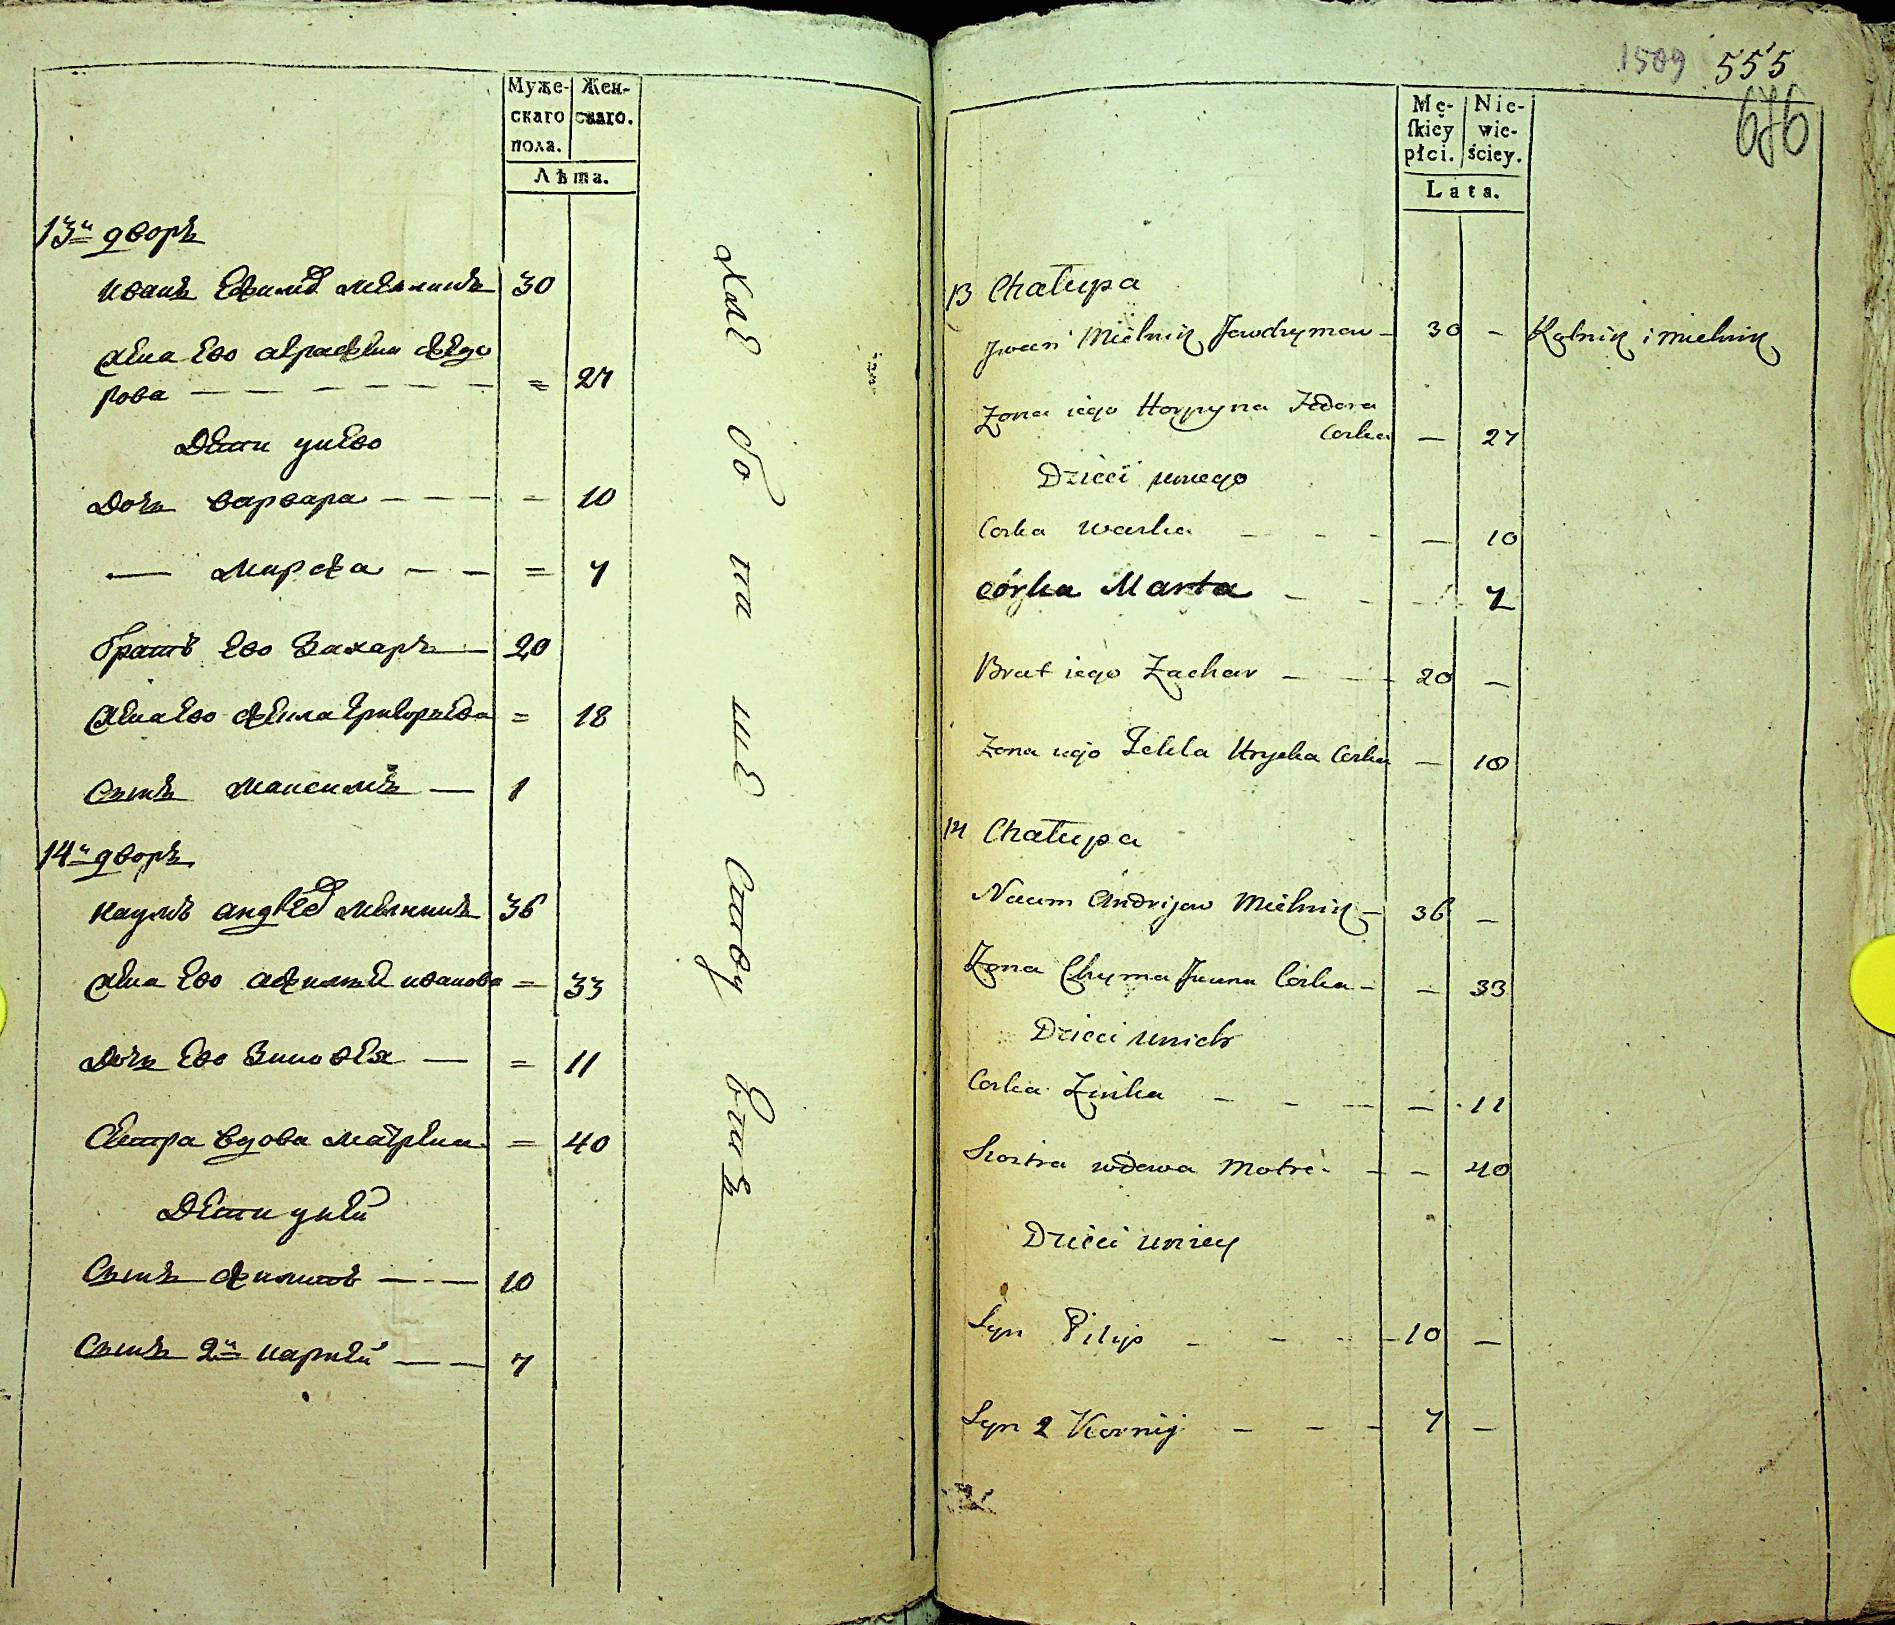 Муже-
скаго
пола.
Жен-
скаго.
Лѣта.
13й дворъ
Иванъ Ефимов Мелникъ 30
Жена Ево Аграфена Федо
рова — — — — — — = 27
Дети унево
Дочь Варвара — — — — 10
— Марфа — — = 7
Братъ Ево Захаръ — 20
Жена Ево Фекла Григорьева = 18
Сынъ Максимъ — 1
14й дворъ
Наумъ Андреев Мелникъ 36
Жена Ево Афимья Иванова = 33
Дочь Ево Зиновея — = 11
Сестра вдова Матрена = 40
Дети уней
Сынъ Филипъ — — 10
Сынъ 2й Карней — — 7
1509 555
686
Mę-
ſkiey
płci.
Nie-
wie-
ściey.
Lata.
13 Chałupa
Jwan Mielnik Jewchymow – 30 – Rolnik i mielnik
Żona iego Horpyna Fedora
Corka — 27
Dzieci uniego
Corka Warka – – – — 10
córka Marta – – – 7
Brat iego Zachar – – – 20 –
Żona iego Fekla Hryćka Corka — 18
14 Chałupa
Naum Andrijow Mielnik – 36 –
Żona Chyma Jwana Corka – – 33
Dzieci unich
Corka Zinka – – — — 11
Siostra wdowa Motre – – – 40
Dzieci uniey
Syn Filip – – – – 10 –
Syn 2 Kornij – – – 7 –